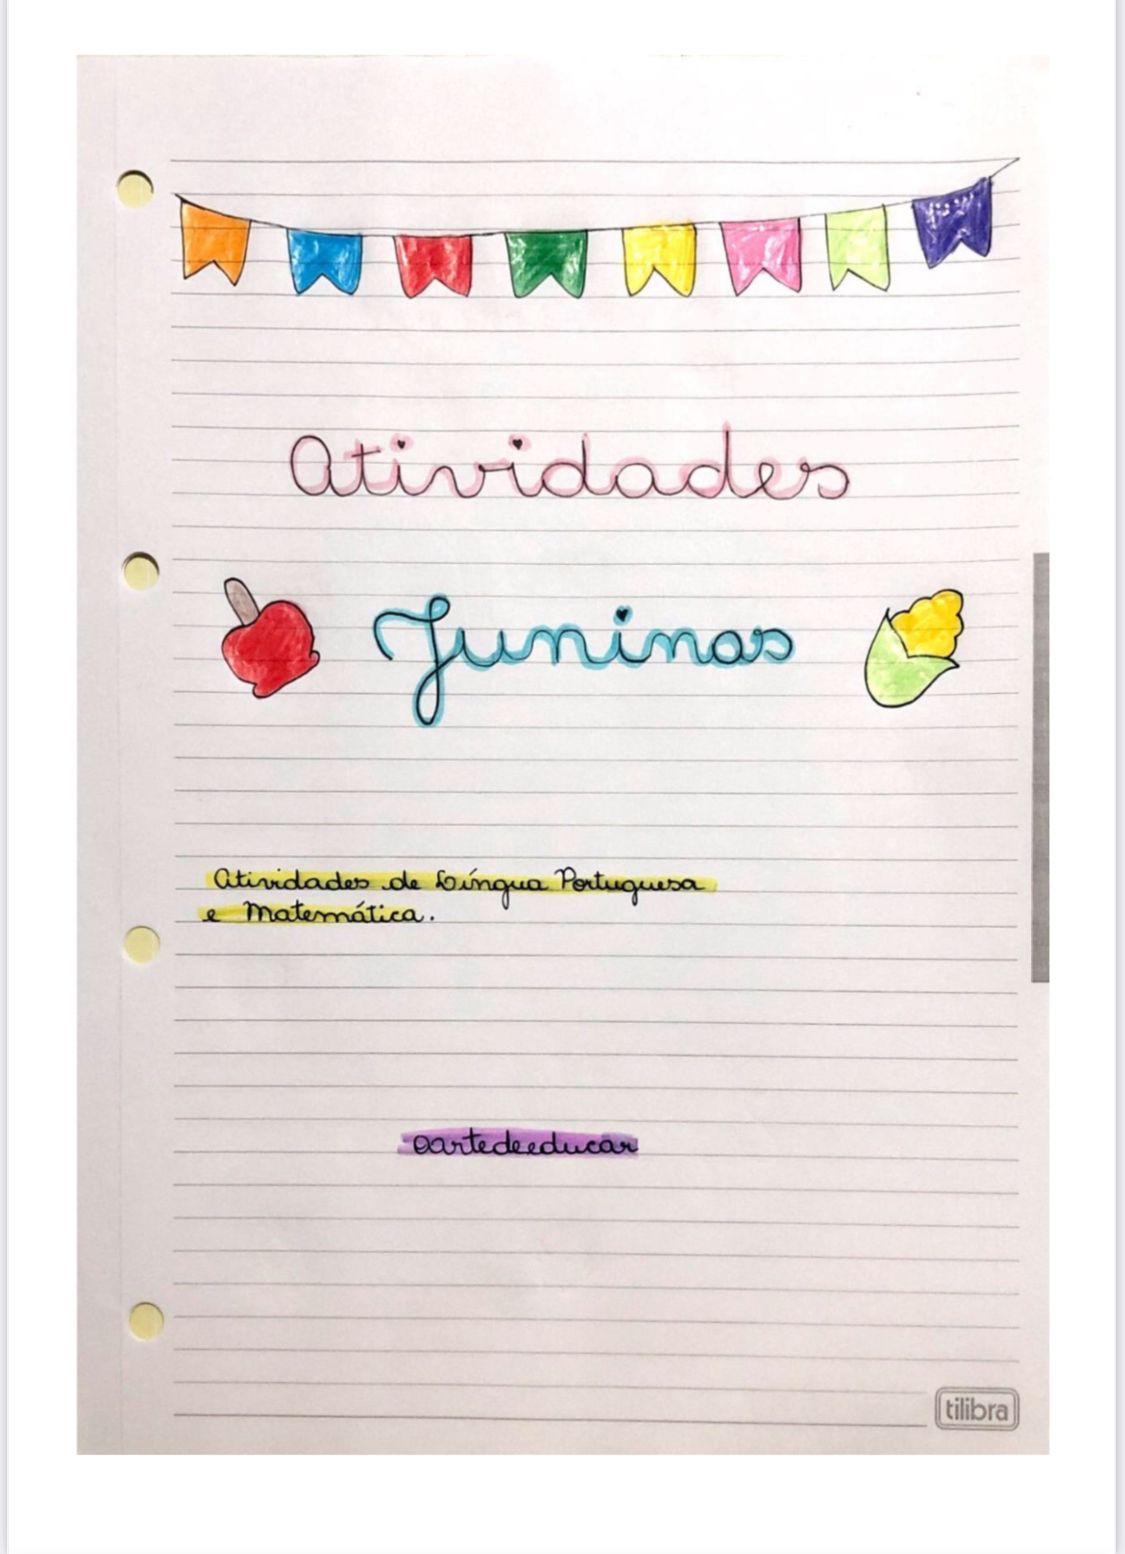 Atividades
Juninas
Atividades de Língua Portuguesa
e Matemática.
aartedeeducar
tilibra